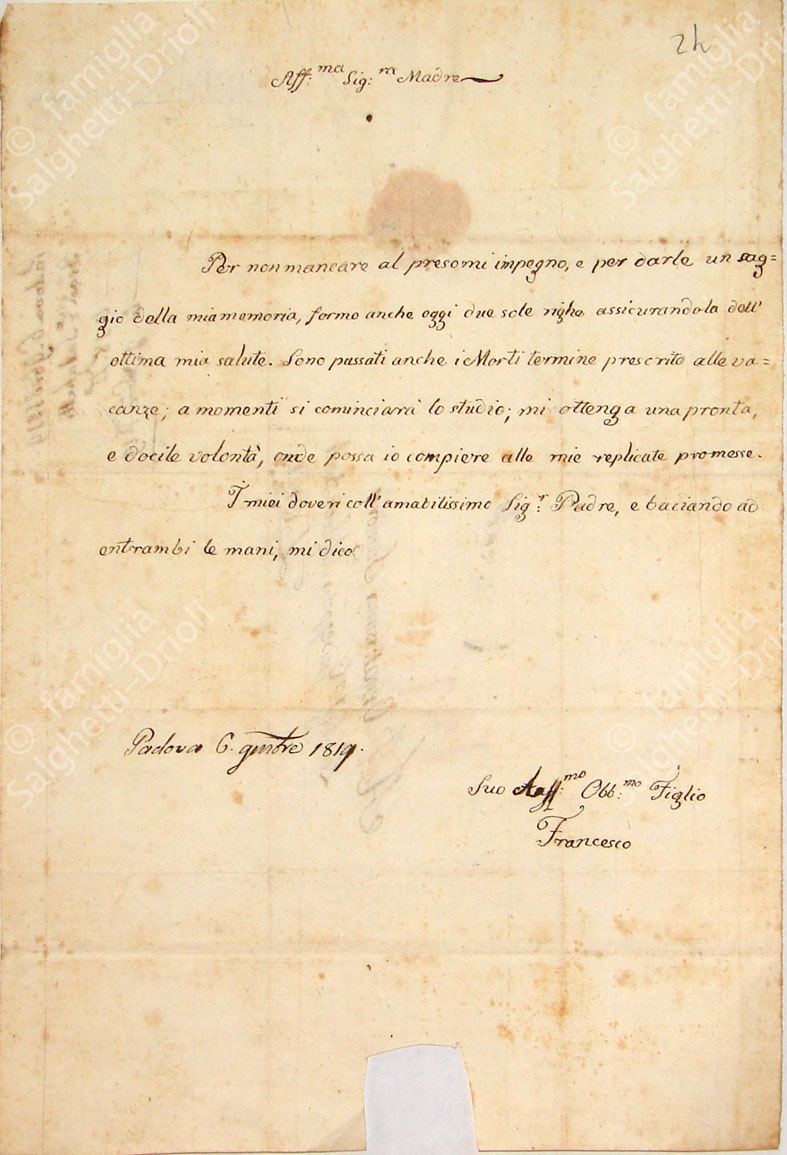 24
Aff:ma Sig:ra Madre
Per non mancare al presomi impegno, e per darle un sag=
gio della mia memoria, formo anche oggi due sole righe assicurandola dell'
ottima mia salute. Sono passati anche i Morti termine prescrito alle va=
canze; a momenti si cominciarà lo studio; mi ottenga una pronta,
e docile volontà, onde possa io compiere alle mie replicate promesse.
I miei doveri coll'amabilissimo Sig:r Padre, e baciando ad
entrambi le mani, mi dico
Padova 6. 9mbre 1819.
Suo Aff:mo Obb:mo Figlio
Francesco
© famiglia
Salghetti-Drioli
© famiglia
Salghetti-Drioli
© famiglia
Salghetti-Drioli
© famiglia
Salghetti-Drioli